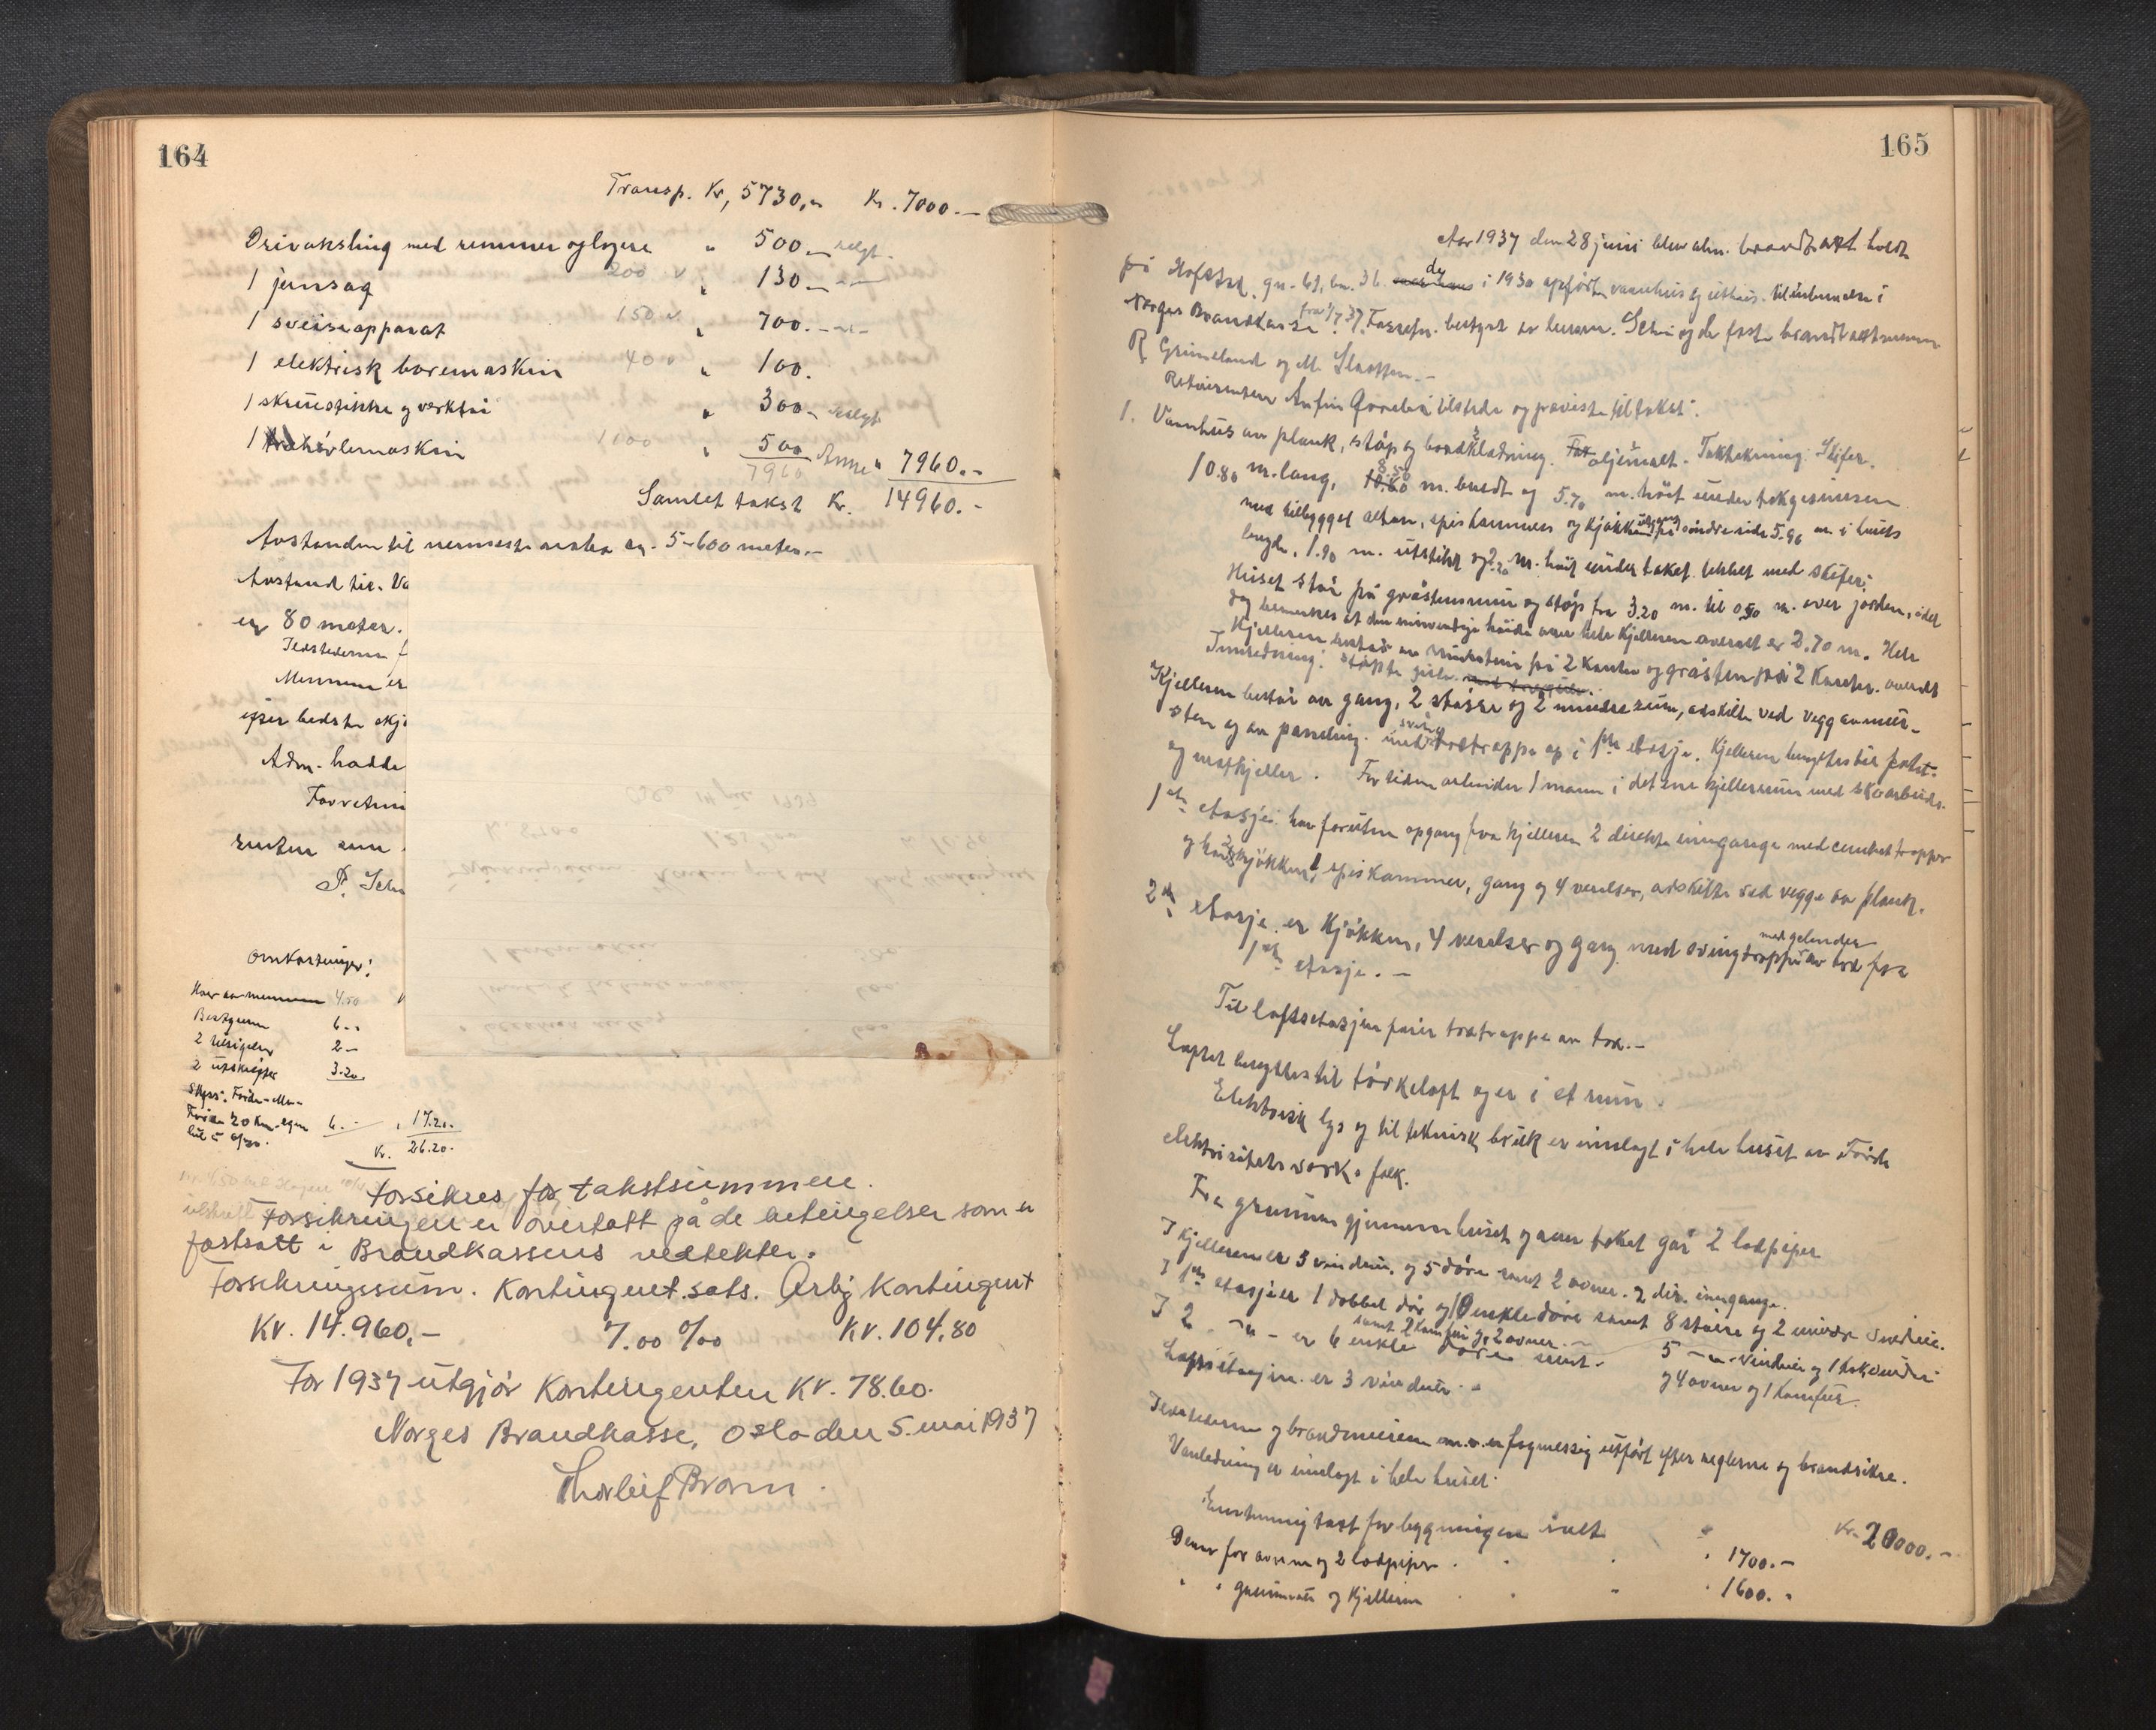 164
Transp. Kr, 5730,- Kr. 7000.-
Drivaksling med remmer og lagere " 500.- solgt
1 jernsag 200 v " 130.-
1 sveiseapparat 150 v " 700.-
1 elektrisk boremaskin 400 " 100.
1 skruestikke og verktøi " 300.- solgt
1 høvlemaskin 1100 " 500 " 7960.-
7960
Samlet takst Kr. 14960.-
Avstanden til nermeste nabo er. 5-600 meter.-
Avstand til Va
er 80 meter.
Ildstederne f
Mennene er
efter bedste skj
Adm. hadde
Forretni
renten som
P. Sch
Omkostninger:
Hver av mennene 4.50
Bestyreren 6.-
2 tilsigelser 2-
2 utskrifter 3.20
Skyss. Førde-
Førde 20 km. egen 6.- , 17.20.
bil
Kr. 26.20.
Forsikres for takstsummen.
Forsikringen er overtatt på de betingelser som er
fastsatt i Brandkassens vedtekter.
Forsikringssum. Kontingent.sats. Årlig Kontingent
Kr. 14.960,- 7.00 ‰ Kr. 104,80
For 1937 utgjør Kontingenten Kr. 78.60.
Norges Brandkasse, Oslo den 5. mai 1937
Thorleif Bram
165
Aar 1937 den 28 juni blev alm. brandtakst holdt
på Hofstad, gn. 61, bn. 36. i 1930 opført vaanhus og uthus til innbrennelse i
Norges Brandkasse fra 1/7 37. Forretn. bestyrt av lensm. og de faste brandtaksmenn
R Grimeland og M. Slaatten.-
Rekvirenten Anfin tilstede og paaviste til takst.
1. Vaanhus av plank, støp og bordkledning. oljemalt. Taktekning: Skifer.
10.80 m. lang, 8.50 m. bredt og 5.70 m. høit under takgesimsen
med tilbygget altan, spiskammer og kjøkkenutgang på søndre side 5.96 m. i husets
lengde, 1.90 m. utstikk og 2.20 m. høit under taket tekket med skifer.
Huset står på gråstensmur og støp fra 3.20 m. til 0.50 m. over jorden, idet
det bemerkes at den innvendige høide over hele kjelleren overalt er 2.70 m. Hele
Kjelleren består av mursten på 2 kanter og gråsten på 2 kanter. overalt
Innredning: støpte gulv.
Kjelleren består av gang, 2 større og 2 mindre rum, adskilte ved vegg av mur-
sten og av paneling. med sving trætrappe op i 1ste etasje. Kjelleren benyttes til potet-
og matkjeller. For tiden arbeider 1 mann i det ene kjellerrum med skoarbeide.
1ste etasje har foruten opgang fra kjelleren 2 direkte innganger med cementtrapper
og har kjøkken, spiskammer, gang og 4 værelser, adskilte ved vegge av plank.
2den etasje er kjøkken, 4 værelser og gang med svingtrappe av træ fra
med gelender
1ste etasje.-
Til loftsetasjen fører trætrappe av træ.-
Loftet benyttes til tørkeloft og er i et rum.
Elektrisk lys og til teknisk bruk er innlagt i hele huset av Førde
elektrisitetsverks folk.
Fra grunnen gjennem huset og over taket går 2 lodpiper
I kjelleren er 3 vinduer, og 5 døre samt 2 ovner. 2 dir. innganger.
I 1ste etasje er 1 dobbel dør og 10 enkle døre samt 8 større og 2 mindre vinduer.
samt 2 komfyrer og 2 ovner.-
I 2 -"- er 6 enkle døre samt 5 -"- vinduer og 1 takvindu
og 4 ovner og 1 Komfur.
Loftsetasjen er 3 vinduer.-
Ildstederne og brandmurene m.v. er fagmessig utført efter reglerne og brandsikre.
Vanledning er innlagt i hele huset.
Enstemmig takst for bygningen i alt Kr. 20000.-
Derav for ovnene og 2 lodpiper . . . 1700.-
" " grunnmur og kjelleren . . . 1600.-